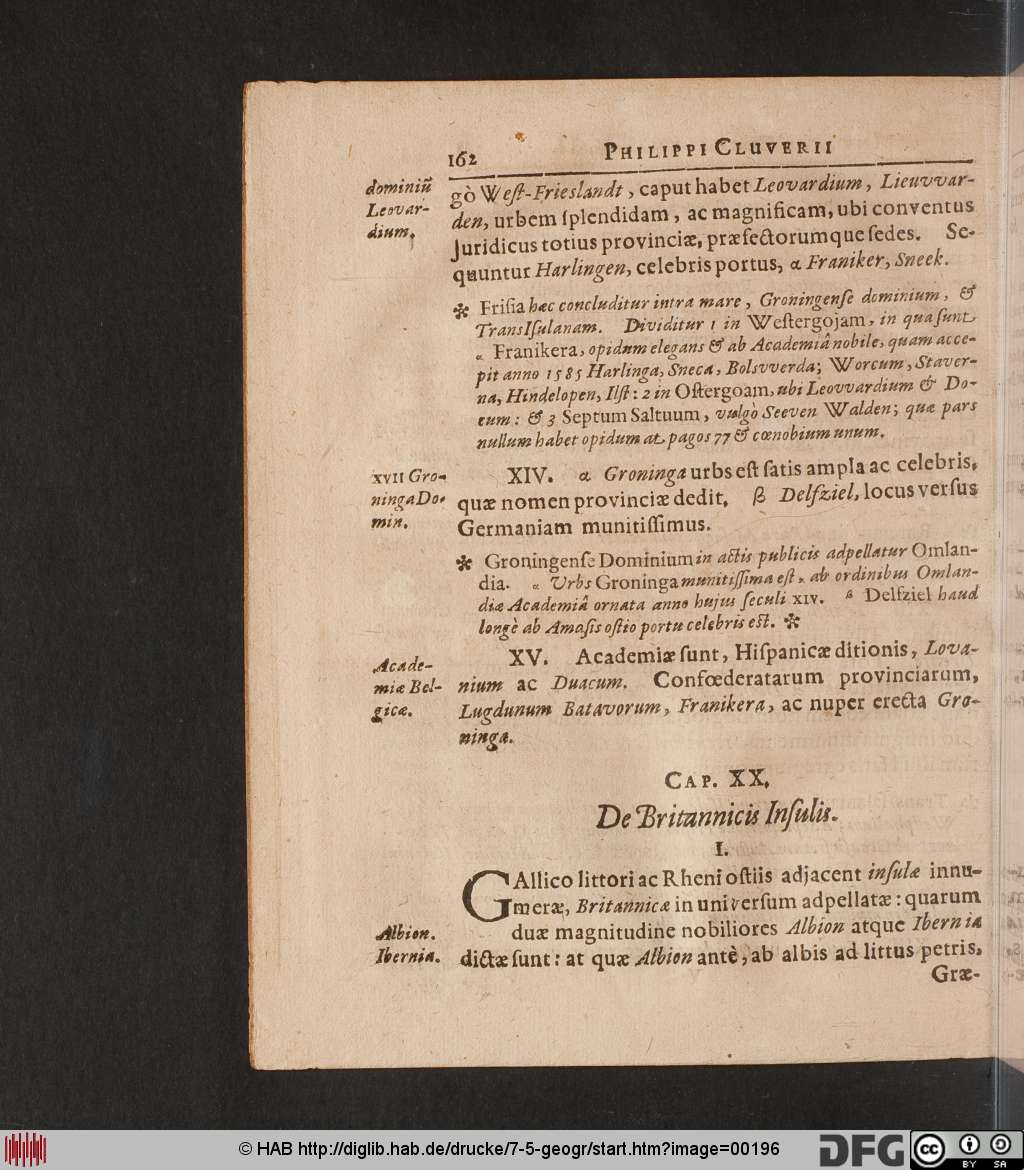 162 PHILIPPI CLUVERII
dominiũ
Leovar-
dium.
gò Weſt-Frieslandt, caput habet Leovardium, Lieuvvar-
den, urbem ſplendidam, ac magnificam, ubi conventus
Juridicus totius provinciæ, præfectorumque ſedes. Se-
quuntur Harlingen, celebris portus, α Franiker, Sneek.
✻ Friſia hæc concluditur intra mare, Groningenſe dominium, &
TransIſulanam. Dividitur 1 in Weſtergojam, in qua ſunt
α Franikera, opidum elegans & ab Academiâ nobile, quam acce-
pit anno 1585 Harlinga, Sneca, Bolsvverda; Worcum, Staver-
na, Hindelopen, Ilſt: 2 in Oſtergoam, ubi Leovvardium & Do-
cum: & 3 Septum Saltuum, vulgò Seeven Walden; quæ pars
nullum habet opidum at pagos 77 & cœnobium unum.
XVII Gro-
ninga Do-
min.
XIV. α Groninga urbs eſt ſatis ampla ac celebris,
quæ nomen provinciæ dedit, β Delfziel, locus verſus
Germaniam munitiſſimus.
✻ Groningenſe Dominium in actis publicis adpellatur Omlan-
dia. α Urbs Groninga munitiſſima eſt, ab ordinibus Omlan-
diæ Academiâ ornata anno hujus ſeculi XIV. β Delfziel haud
longè ab Amaſis oſtio portu celebris eſt. ✻
Acade-
miæ Bel-
gicæ.
XV. Academiæ ſunt, Hiſpanicæ ditionis, Lova-
nium ac Duacum. Confœderatarum provinciarum,
Lugdunum Batavorum, Franikera, ac nuper erecta Gro-
ninga.
CAP. XX.
De Britannicis Inſulis.
I.
GAllico littori ac Rheni oſtiis adjacent inſulæ innu-
meræ, Britannicæ in univerſum adpellatæ: quarum
duæ magnitudine nobiliores Albion atque Ibernia
Albion.
Ibernia.
dictæ ſunt: at quæ Albion antè, ab albis ad littus petris,
Græ-
© HAB http://diglib.hab.de/drucke/7-5-geogr/start.htm?image=00196
DFG
cc BY SA